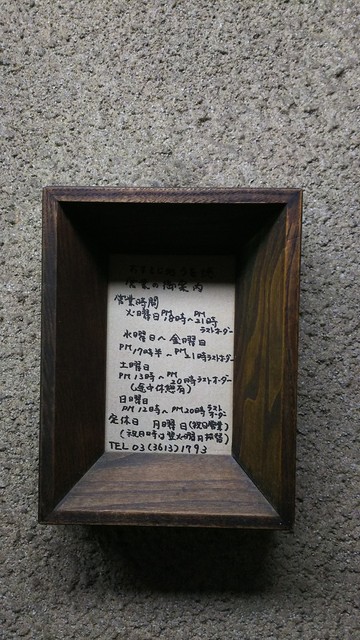 営業の御案内
営業時間
火曜日 PM18時〜PM21時
ラストオーダー
水曜日へ金曜日
PM17時半〜PM21時ラストオーダー
土曜日
PM13時〜PM20時ラストオーダー
(途中休憩有)
日曜日
PM12時〜PM20時ラストオーダー
定休日 月曜日(祝日営業)
(祝月時は翌火曜日振替)
TEL 03(3613)1793